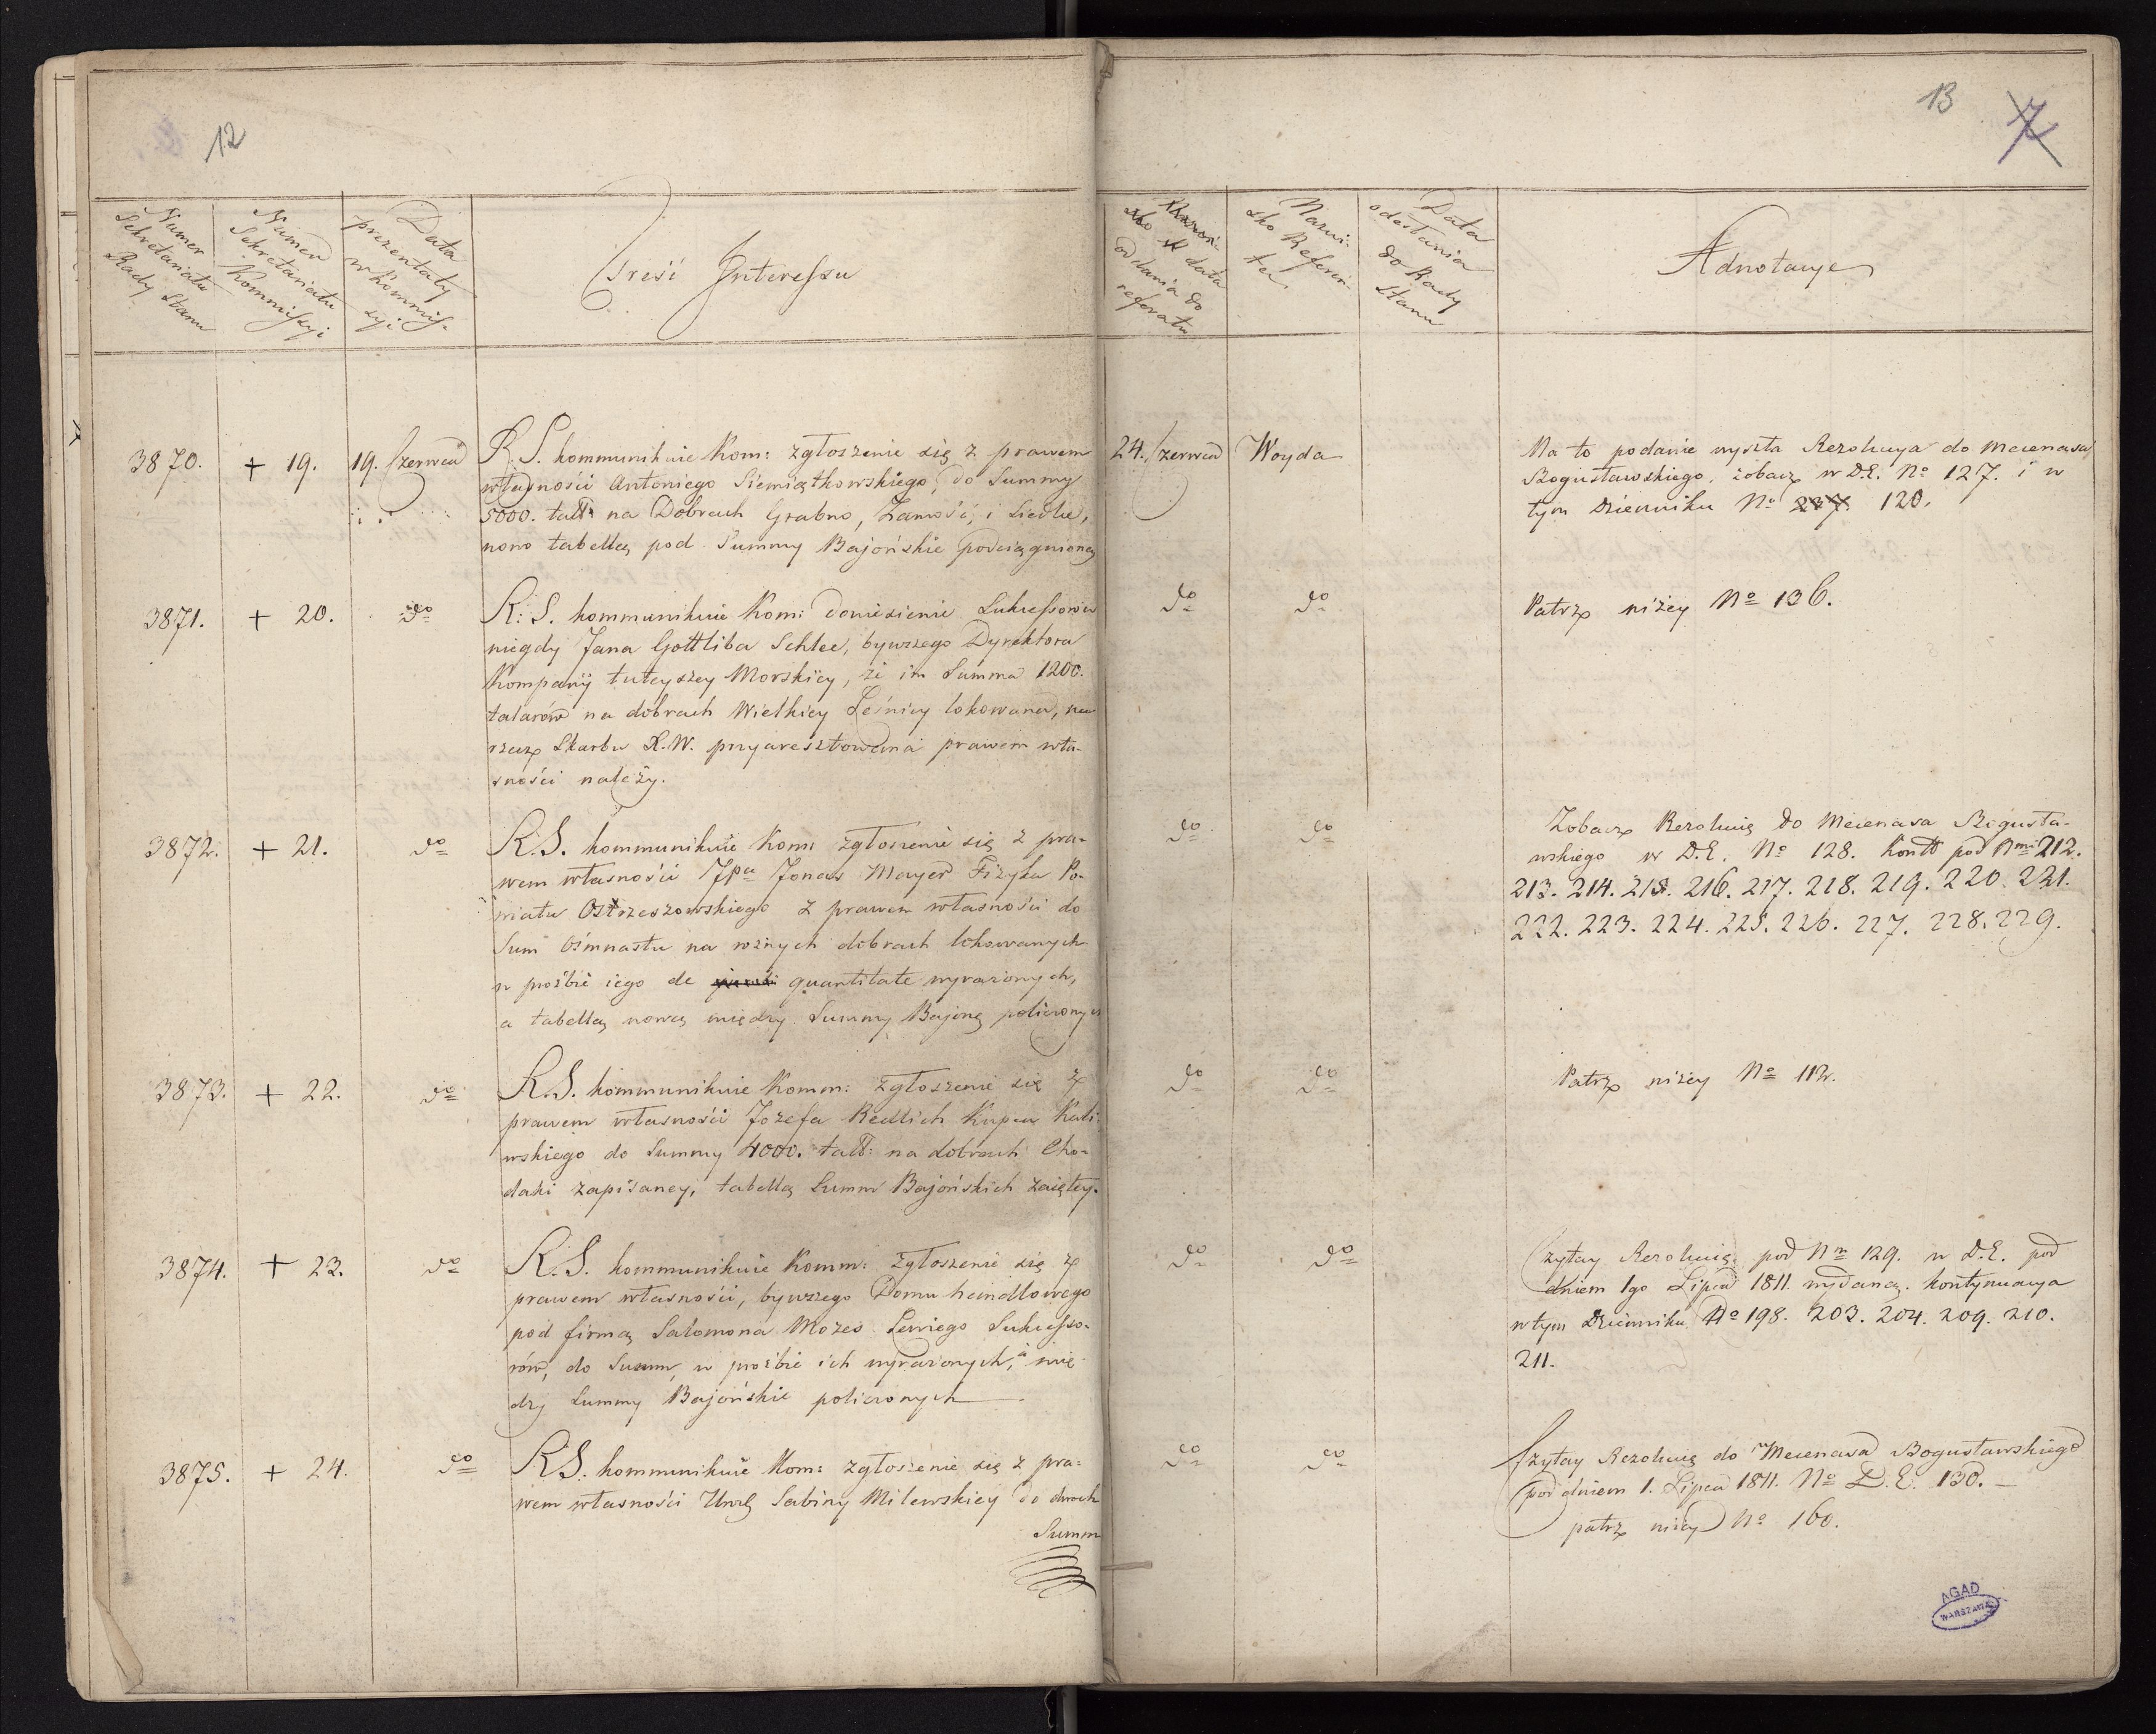 12
Numer
Sekretariatu
Rady Stanu
Numer
Sekretariatu
Kommissyi
Data
prezentaty
w Kommis-
syi
Treść Interessu
3870. + 19. 19. Czerwca
R. S. kommunikuie Kom: zgłoszenie się z prawem
własności Antoniego Siemiątkowskiego, do Summy
5000. tall: na Dobrach Grabno, Zamość, i Siedlce,
nowo tabellą pod Summy Bajońskie podciągnioney
3871. + 20. do
R: S. kommunikuie Kom: doniesienie Sukcessorów
niegdy Jana Gottliba Schlee, bywszego Dyrektora
Kompanij tuteyszey Morskiey, że im Summa 1200.
talarów na dobrach Wielkiey Leśnicy lokowana, na
rzecz Skarbu X. W. przyaresztowana prawem wła-
sności należy.
3872. + 21. do
R. S. kommunikuie Kom: zgłoszenie się z pra-
wem własności JPa Jonas Mayer Fizyka Po-
wiatu Ostrzeszowskiego z prawem własności do
Sum ośmnastu na różnych dobrach lokowanych
w prośbie iego de quantitate wyrażonych,
a tabellą nową między Summy Bajonę policzonych
3873. + 22. do
R. S. kommunikuie Komm: zgłoszenie się z
prawem własności Jozefa Redlich Kupca Kali-
wskiego do Summy 4000. tall: na dobrach Cho-
daki zapisaney, tabellą Summ Bajońskich zaiętey.
3874. + 23. do
R. S. kommunikuie Komm: zgłoszenie się z
prawem własności, bywszego Domu handlowego
pod firmą Salomona Mozes Lewiego Sukcesso-
rów, do Summ, w prośbie ich wyrażonych, a mię-
dzy Summy Bajońskie policzonych
3875. + 24. do
R. S. kommunikuie Kom: zgłoszenie się z pra-
wem własności Urod. Sabiny Milewskiey do dwóch
Summ
13 7
data
oddania do
referatu
Nazwi-
sko Referen-
ta
Data
odesłania
do Rady
Stanu
Adnotacye
24. Czerwca Woyda
Na to podanie wyszła Rezolucya do Mecenasa
Bogusławskiego, zobacz w D.E. No 127. i w
tym Dzienniku No 237 120.
do do
Patrz niżey No 136.
do do
Zobacz Rezolucię do Mecenasa Bogusła-
wskiego w D.E. No 128. Kontt pod Nmi 212.
213. 214. 215. 216. 217. 218. 219. 220. 221.
222. 223. 224. 225. 226. 227. 228. 229.
do do
Patrz niżey No 112.
do do
Czytay Rezolucię pod Nm 129. w D.E. pod
dniem 1go Lipca 1811 wydaną. kontynuacya
w tym Dzienniku No 198. 203. 204. 209. 210.
211.
do do
Czytay Rezolucię do Mecenasa Bogusławskiego
pod dniem 1. Lipca 1811. No D. E. 130. –
patrz niżey No 160.
AGAD
WARSZAWA